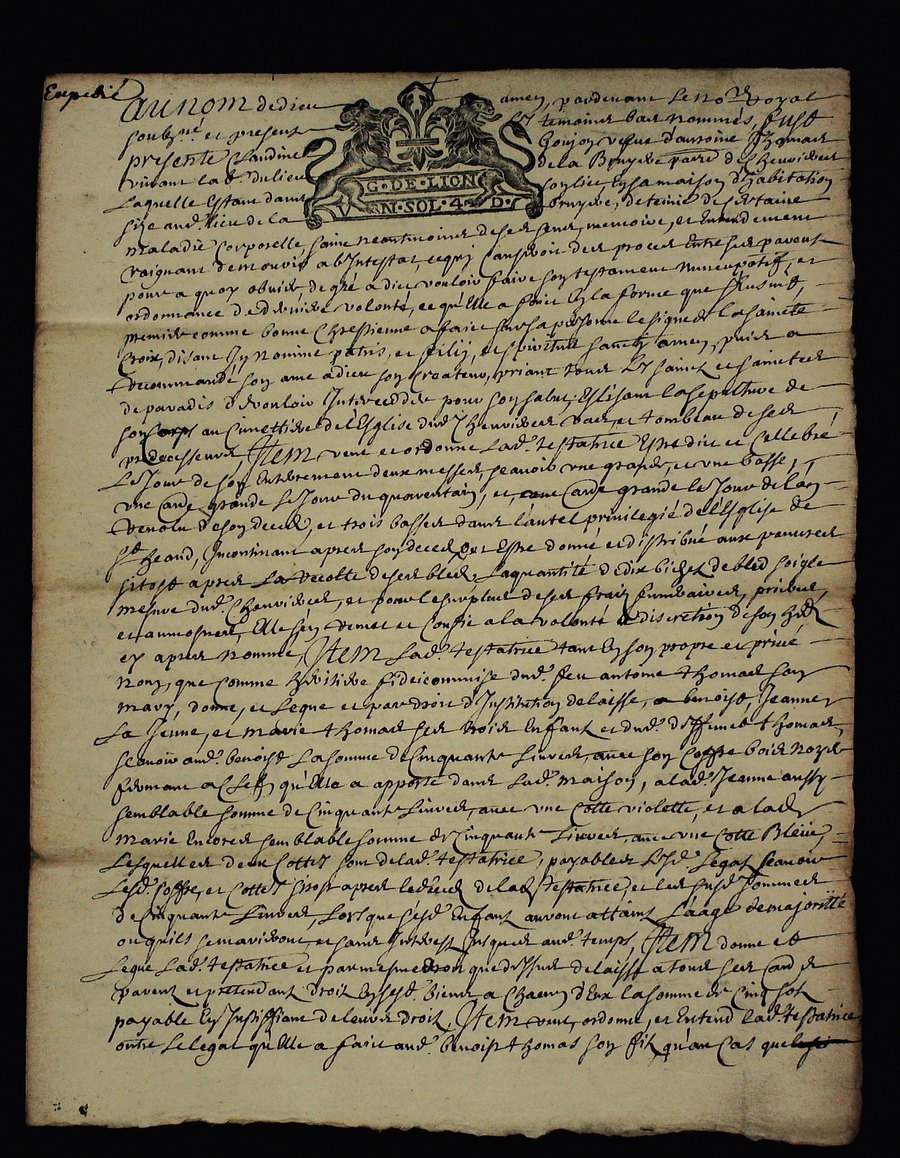 Expedié
Au nom de dieu amen, pardevant le no.re royal
soubz.né et present les temoins bas nommés, fust
presente Claudine Goijon vefve d'antoine Thomas
vivant lab.r du lieu de la Bruyere parr.e de Chenereilles
Laquelle Estant dans son lict En sa maison d'habitation
size aud. lieu de la Bruyere, detenue de certaine
G·DE·LION
VN·SOL·4·D·
maladie Corporelle, saine neantmoins de ses sens, memoire, et Entendement
Craignant de mourir abIntestat, ce qui Causeroit des proces Entre ses parents
pour a quoy obvier de gré a dieu vouloir faire son testament nuncupatif, et
ordonnance de derniere volonté, ce qu'Elle a faict En la forme que s'Ensuit,
premier comme bonne Chrestienne a faict sur sa personne le signe de la sainte
Croix, disant In nomine patris, et filij, et spiritus sancti amen, puis a
Recommandé son ame a dieu son Createur, priant tous Les saints et saintes
de paradis de vouloir Interceder pour son salut, Eslisant la sepulture de
son Corps au Cimettiere de l'Esglise dud. Chenereilles et tombeau de ses
predecesseurs, Item veut et ordonne Lad. testatrice Estre dit et Cellebré
Le Jour de son Enterrement deux messes, scavoir une grande, et une basse,
une autre grande le Jour du quarentain, et une autre grande le Jour de l'an
revolu de son deces, et trois basses dans l'autel privilegié de l'Esglise de
St. Jeand, Incontinant apres son deces Estre donné et distribué aux pauvres
sitost apres La Recolte de ses bleds, La quantité de dix bichets de bled soigle
mesure dud. Chenereilles, et pour le surplus de ses frais funeraires, prieres,
et aumosnes, Elle s'en remet et Confie a la volonté et discretion de son her.
cy apres nommé, Item Lad. testatrice tant En son propre et privé
Nom, que comme heritiere fideicommise dud. feu antoine thomas son
mary, donne, et legue et par droit d'Institution delaisse, a benoist, Jeanne
La Jeune, et Marie thomas ses trois Enfants et dud. deffunct thomas,
scavoir aud. benoist La somme de Cinquante Livres, avec son Coffre bois Noyer
fermant a Clef, qu'Elle a apporté dans Lad. maison, a lad. Jeanne aussy
semblable somme de Cinquante Livres, avec une Cotte violette, et a lad.
Marie Encores semblable somme de Cinquante Livres, avec une Cotte Bleüe,
Lesquelles deux Cottes sont de lad. testatrice, payables Lesd. Legats scavoir
Lesd. Coffre, et Cottes sitost apres le deces de lad. testatrice, et les susd. sommes
de Cinquante Livres, Lorsque sesd. Enfants auront attaint L'aage de majoritté
ou qu'ils se marieront, et sans Interest Jusques aud. temps, Item donne et
Legue Lad. testatrice et par mesme droit que dessus delaisse a tous ses autres
parents et pretendant droit En sesd. biens a Chacun d'Eux la somme de Cinq sols
payable En Justiffiant de leurs droits, Item veut, ordonne, et Entend Lad. testatrice
outre Le legat qu'Elle a faict aud. benoist thomas son fils, qu'au Cas que